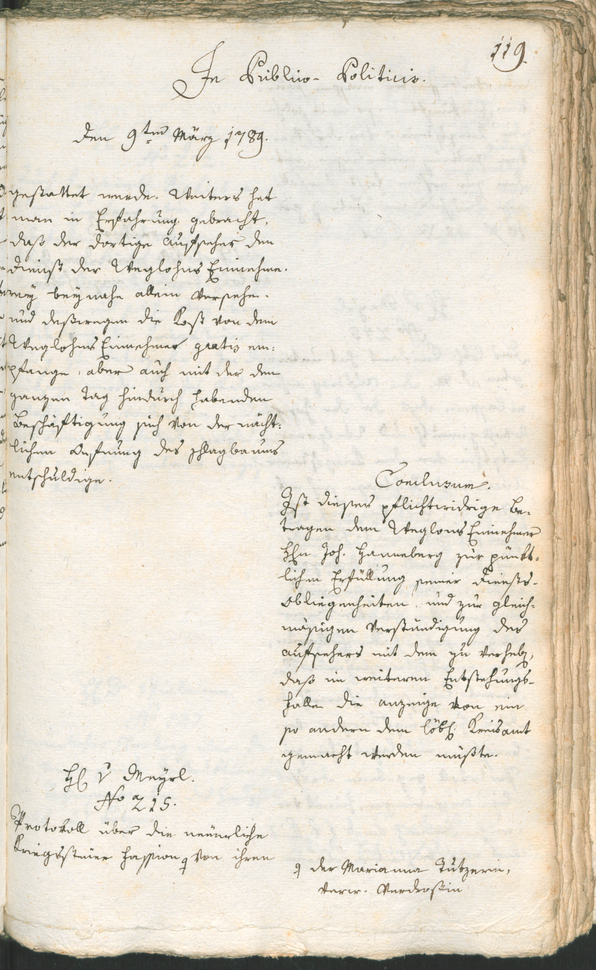 119.
In Publico-Politicis.
den 9ten März 1789.
gestattet werde. Weiters hat
man in Erfahrung gebracht,
daß der dortige Aufseher den
Dienst der Weglohns Einnehme-
rey beynahe allein versehe.
und deßwegen die Kost von dem
Weglohns Einnehmer gratis em-
pfange, aber auch mit der den
ganzen Tag hindurch habenden
Beschäftigung sich von der nächt-
lichen Oefnung des Schlagbaums
entschuldige.
Conclusum.
Ist dieses pflichtwidrige Be-
tragen dem Weglons Einnehmer
Hrn Joh. Hanneberg zur pünkt-
lichen Erfüllung seiner Dienst-
obliegenheiten, und zur gleich-
mäsigen Verständigung des
aufsehers mit dem zu verheben,
daß im weiteren Entstehungs-
falle die anzeige von ein
so andern dem löbl. Kreisamt
gemacht werden müßte.
H. v. Meyrl.
No 215.
Protokoll über die neuerliche
Kriegssteuer Fassion von ihren
der Marianna Tutzerin,
verw. Verdroßin